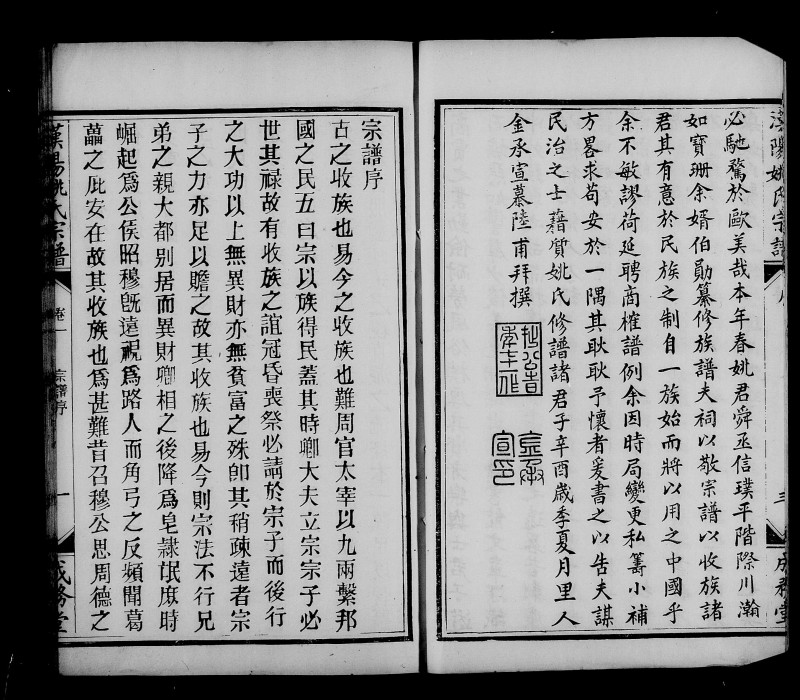 漢陽姚氏宗譜
序
三
成務堂
必馳騖於歐美哉本年春姚君舜丞信璞平階際川瀚
如寶珊余婿伯勛纂修族譜夫祠以敬宗譜以收族諸
君其有意於民族之制自一族始而將以用之中國乎
余不敏謬荷延聘商榷譜例余因時局變更私籌小補
方畧求苟安於一隅其耿耿予懷者爰書之以告夫謀
民治之士藉質姚氏修譜諸君子辛酉歲季夏月里人
金承宣慕陸甫拜撰
宗譜序
古之收族也易今之收族也難周官太宰以九兩繫邦
國之民五曰宗以族得民蓋其時卿大夫立宗宗子必
世其祿故有收族之誼冠昏喪祭必請於宗子而後行
之大功以上無異財亦無貧富之殊卽其稍疎遠者宗
子之力亦足以贍之故其收族也易今則宗法不行兄
弟之親大都别居而異財卿相之後降爲皂隷氓庶時
崛起爲公侯昭穆旣遠視爲路人而角弓之反頻開葛
藟之庇安在故其收族也爲甚難昔召穆公思周德之
漢陽姚氏宗譜
卷一
宗譜序
一
成務堂